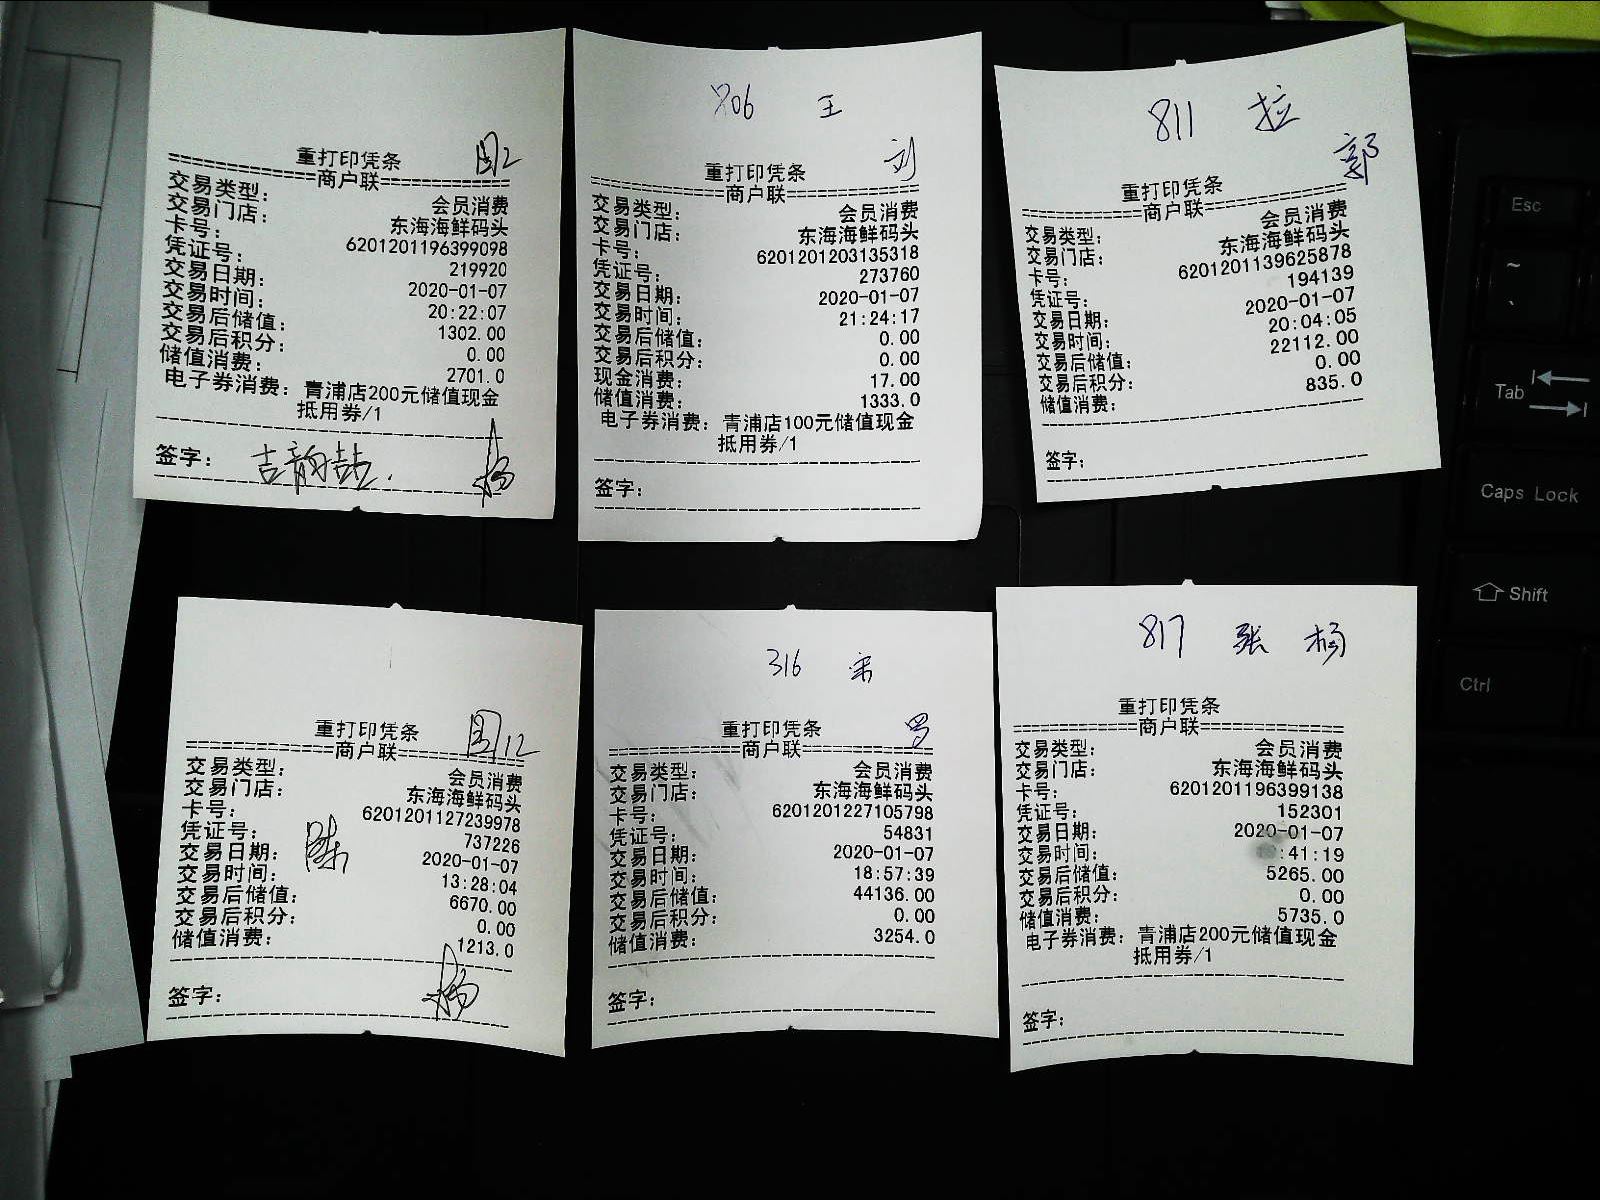 图2
重打印凭条
==========商户联==========
交易类型: 会员消费
交易门店: 东海海鲜码头
卡号: 6201201196399098
凭证号: 219920
交易日期: 2020-01-07
交易时间: 20:22:07
交易后储值: 1302.00
交易后积分: 0.00
储值消费: 2701.0
电子券消费: 青浦店200元储值现金
抵用券/1
签字: 杨
706 王
刘
重打印凭条
==========商户联==========
交易类型: 会员消费
交易门店: 东海海鲜码头
卡号: 6201201203135318
凭证号: 273760
交易日期: 2020-01-07
交易时间: 21:24:17
交易后储值: 0.00
交易后积分: 0.00
现金消费: 17.00
储值消费: 1333.0
电子券消费: 青浦店100元储值现金
抵用券/1
签字:
811 拉
郭
重打印凭条
==========商户联==========
交易类型: 会员消费
交易门店: 东海海鲜码头
卡号: 6201201139625878
凭证号: 194139
交易日期: 2020-01-07
交易时间: 20:04:05
交易后储值: 22112.00
交易后积分: 0.00
储值消费: 835.0
签字:
图12
重打印凭条
==========商户联==========
交易类型: 会员消费
交易门店: 东海海鲜码头
卡号: 6201201127239978
凭证号: 737226
陈
交易日期: 2020-01-07
交易时间: 13:28:04
交易后储值: 6670.00
交易后积分: 0.00
储值消费: 1213.0
签字: 杨
316 宋
罗
重打印凭条
==========商户联==========
交易类型: 会员消费
交易门店: 东海海鲜码头
卡号: 6201201227105798
凭证号: 54831
交易日期: 2020-01-07
交易时间: 18:57:39
交易后储值: 44136.00
交易后积分: 0.00
储值消费: 3254.0
签字:
817 张 杨
重打印凭条
==========商户联==========
交易类型: 会员消费
交易门店: 东海海鲜码头
卡号: 6201201196399138
凭证号: 152301
交易日期: 2020-01-07
交易时间: :41:19
交易后储值: 5265.00
交易后积分: 0.00
储值消费: 5735.0
电子券消费: 青浦店200元储值现金
抵用券/1
签字:
Esc
~
`
Tab
Caps Lock
Shift
Ctrl